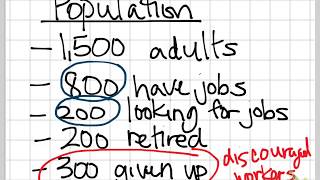 Population
- 1,500 adults
- 800 have jobs
- 200 looking for jobs
- 200 retired
- 300 given up
discouraged
workers